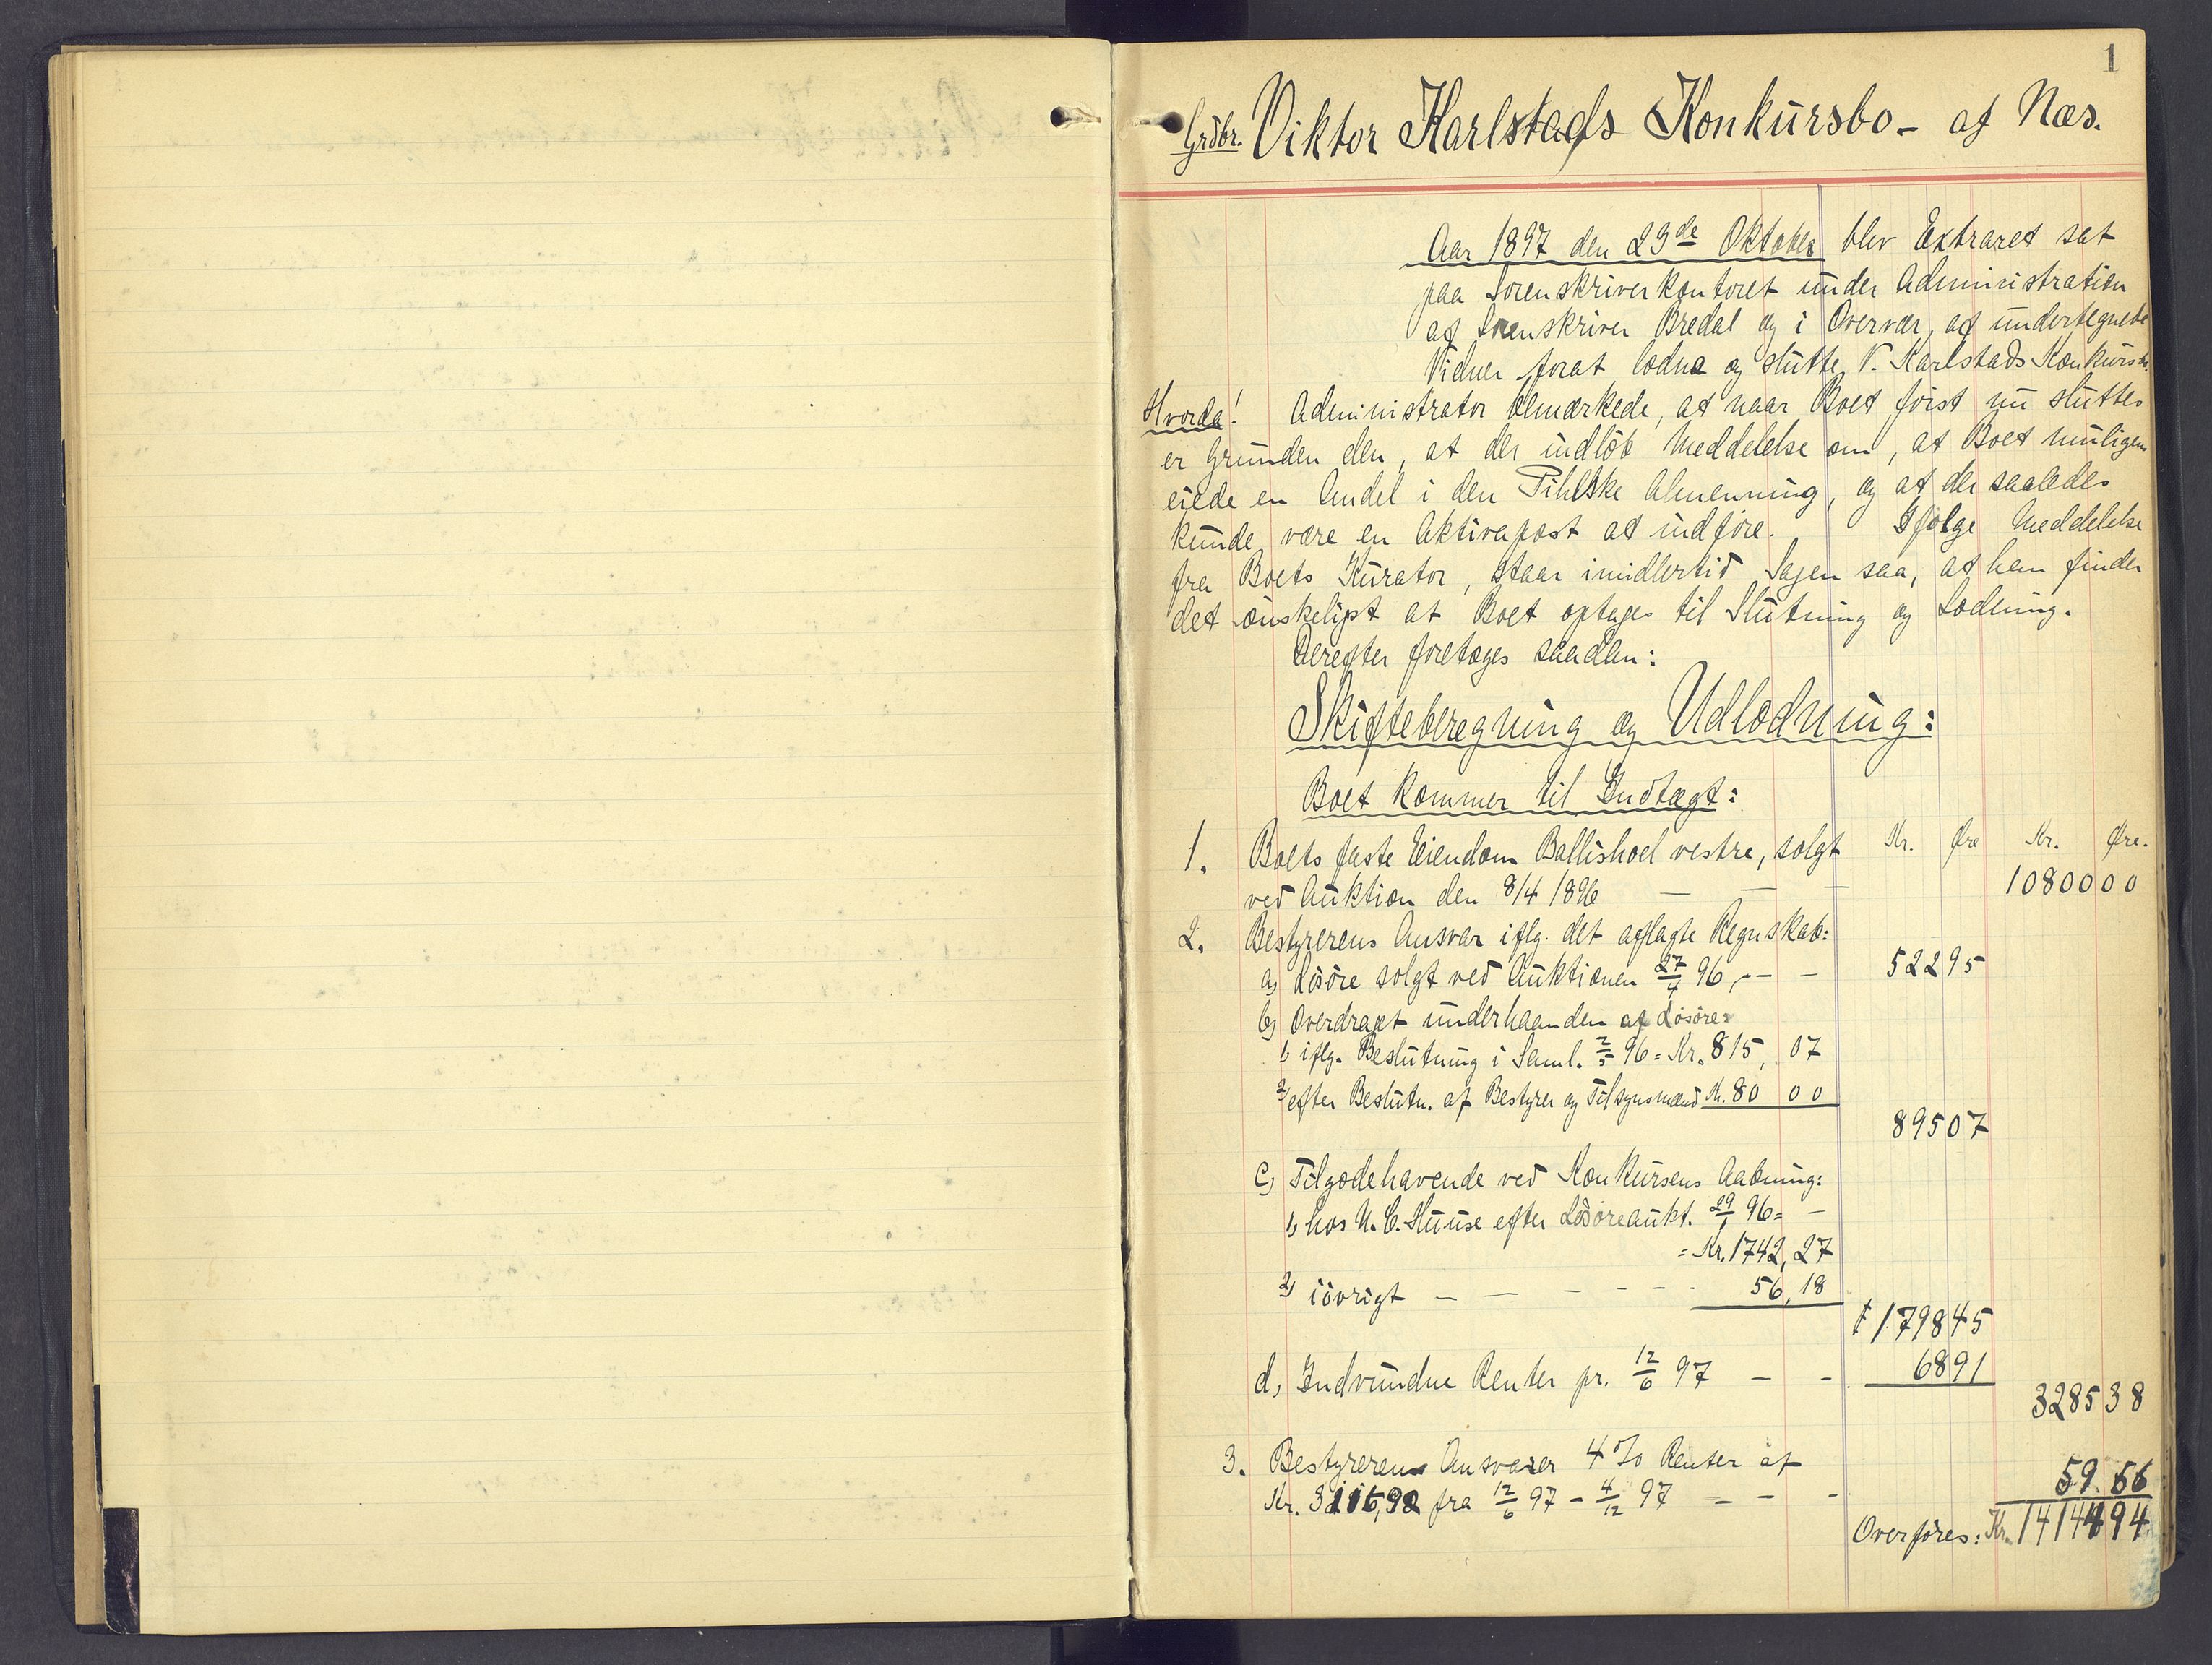 1
Grdbr. Viktor Karlstads Konkursbo - af Næs.
Aar 1897 den 29de Oktober blev Extraret sat
paa Sorenskriverkontoret under Administration
af Sorenskriver Bredal og i Overvær af undertegnede
Vidner forat lodne og slutte V. Karlstads Konkursbo.
Hvorda! Administrator bemærkede, at naar Boet först nu sluttes
er Grunden den, at der indlöb Meddelelse om, at Boet muligens
eiede en Andel i den Pihlske Almenning, og at der saaledes
kunde være en Aktivapost at indföre. Ifölge Meddelelse
fra Boets Kurator, staar imidlertid Sagen saa, at han finder
det önskeligst at Boet optages til Slutning og Lodning.
Derefter foretoges saadan:
Skifteberegning og Udlodning:
Boet kommer til Indtægt:
Kr. Øre Kr. Øre.
1. Boets faste Eiendom Ballishoel vestre, solgt
ved Auktion den 8/4 1896 — — — 10800 00
2. Bestyrerens Ansvar iflg. det aflagte Regnskab:
a) Lösöre solgt ved Auktionen 27/4 96, - - 522 95
b) Overdraget underhaanden af Lösöre:
1) iflg. Beslutning i Saml. 2/5 96 = Kr. 815, 07
2) efter Beslutn. af Bestyrer og Tilsynsmænd Kr. 80 00
895 07
c) Tilgodehavende ved Konkursens Aabning:
1) hos N. C. Stuuse efter Lösöreaukt. 29/1 96 = -
= Kr. 1742, 27
2) iövrigt — — — - - - 56, 18
1798 45
d) Indvundne Renter pr. 12/6 97 - - 68 91
3285 38
3. Bestyreren Ansvarer 4 % Renter af
Kr. 3116,92 fra 12/6 97 - 4/12 97 - - - 59. 56
Overföres: Kr. 14144 94